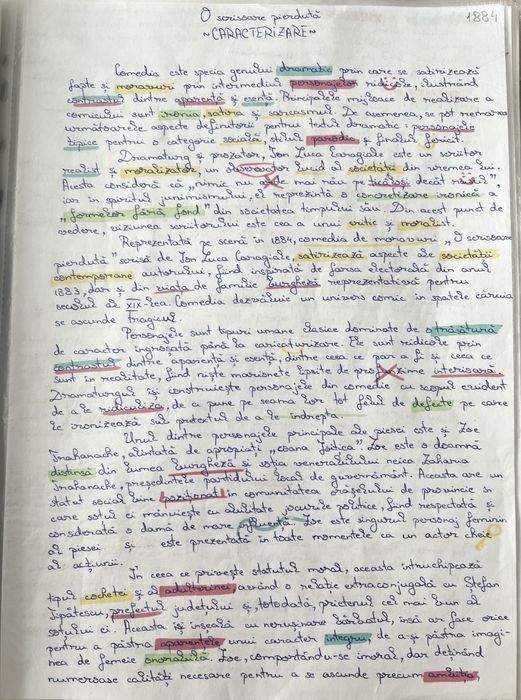 1884
O scrisoare pierdută
~CARACTERIZARE~
Comedia este specia genului dramatic prin care se satirizează
fapte și moravuri prin intermediul personajelor ridicole, ilustrând
contrastul dintre aparență și esență. Principalele mijloace de realizare a
comicului sunt ironia, satira și sarcasmul. De asemenea, se pot remarca
următoarele aspecte definitorii pentru textul dramatic: personajele
tipice pentru o categorie socială, stilul parodic și finalul fericit.
Dramaturg și prozator, Ion Luca Caragiale este un scriitor
realist și moralizator, un observator lucid al societății din vremea lui.
Acesta consideră că „nimic nu arde mai rău pe ticăloși decât râsul"
iar în spiritul junimismului, el reprezintă o concretizare ironică a
„formelor fără fond" din societatea timpului său. Din acest punct de
vedere, viziunea scriitorului este cea a unui critic și moralist.
Reprezentată pe scenă în 1884, comedia de moravuri, „O scrisoare
pierdută" scrisă de Ion Luca Caragiale, satirizează aspecte ale societății
contemporane autorului, fiind inspirată de farsa electorală din anul
1883, dar și din viața de familie burgheză reprezentativă pentru
secolul al XIX-lea. Comedia dezvăluie un univers comic în spatele căruia
se ascunde tragicul.
Personajele sunt tipuri umane clasice dominate de o trăsătură
de caracter îngroșată până la caricaturizare. Ele sunt ridicole prin
contrastul dintre aparență și esență, dintre ceea ce par a fi și ceea ce
sunt în realitate, fiind niște marionete lipsite de profunzime interioară.
Dramaturgul își construiește personajele din comedie cu scopul evident
de a le ridiculiza, de a pune pe seama lor tot felul de defecte pe care
le ironizează sub pretextul de a le îndrepta.
Unul dintre personajele principale ale piesei este și Zoe
Trahanache, alintată de apropiați „coana Joițica". Zoe este o doamnă
distinsă din lumea burgheză și soția venerabilului neica Zaharia
Trahanache, președintele partidului local de guvernământ. Aceasta are un
statut social bine poziționat în comunitatea orășelului de provincie în
care soțul ei mânuiește cu abilitate jocurile politice, fiind respectată și
considerată o damă de mare influență. Zoe este singurul personaj feminin
al piesei și este prezentată în toate momentele ca un actor cheie
al acțiunii.
În ceea ce privește statutul moral, aceasta întruchipează
tipul cochetei și al adulterinei, având o relație extraconjugală cu Ștefan
Tipătescu, prefectul județului și, totodată, prietenul cel mai bun al
soțului ei. Aceasta își înșeală cu nerușinare bărbatul, însă ar face orice
pentru a păstra aparențele unui caracter integru, de a-și păstra imagi-
nea de femeie onorabilă. Zoe, comportându-se imoral, dar deținând
numeroase calități necesare pentru a se ascunde precum ambiția,